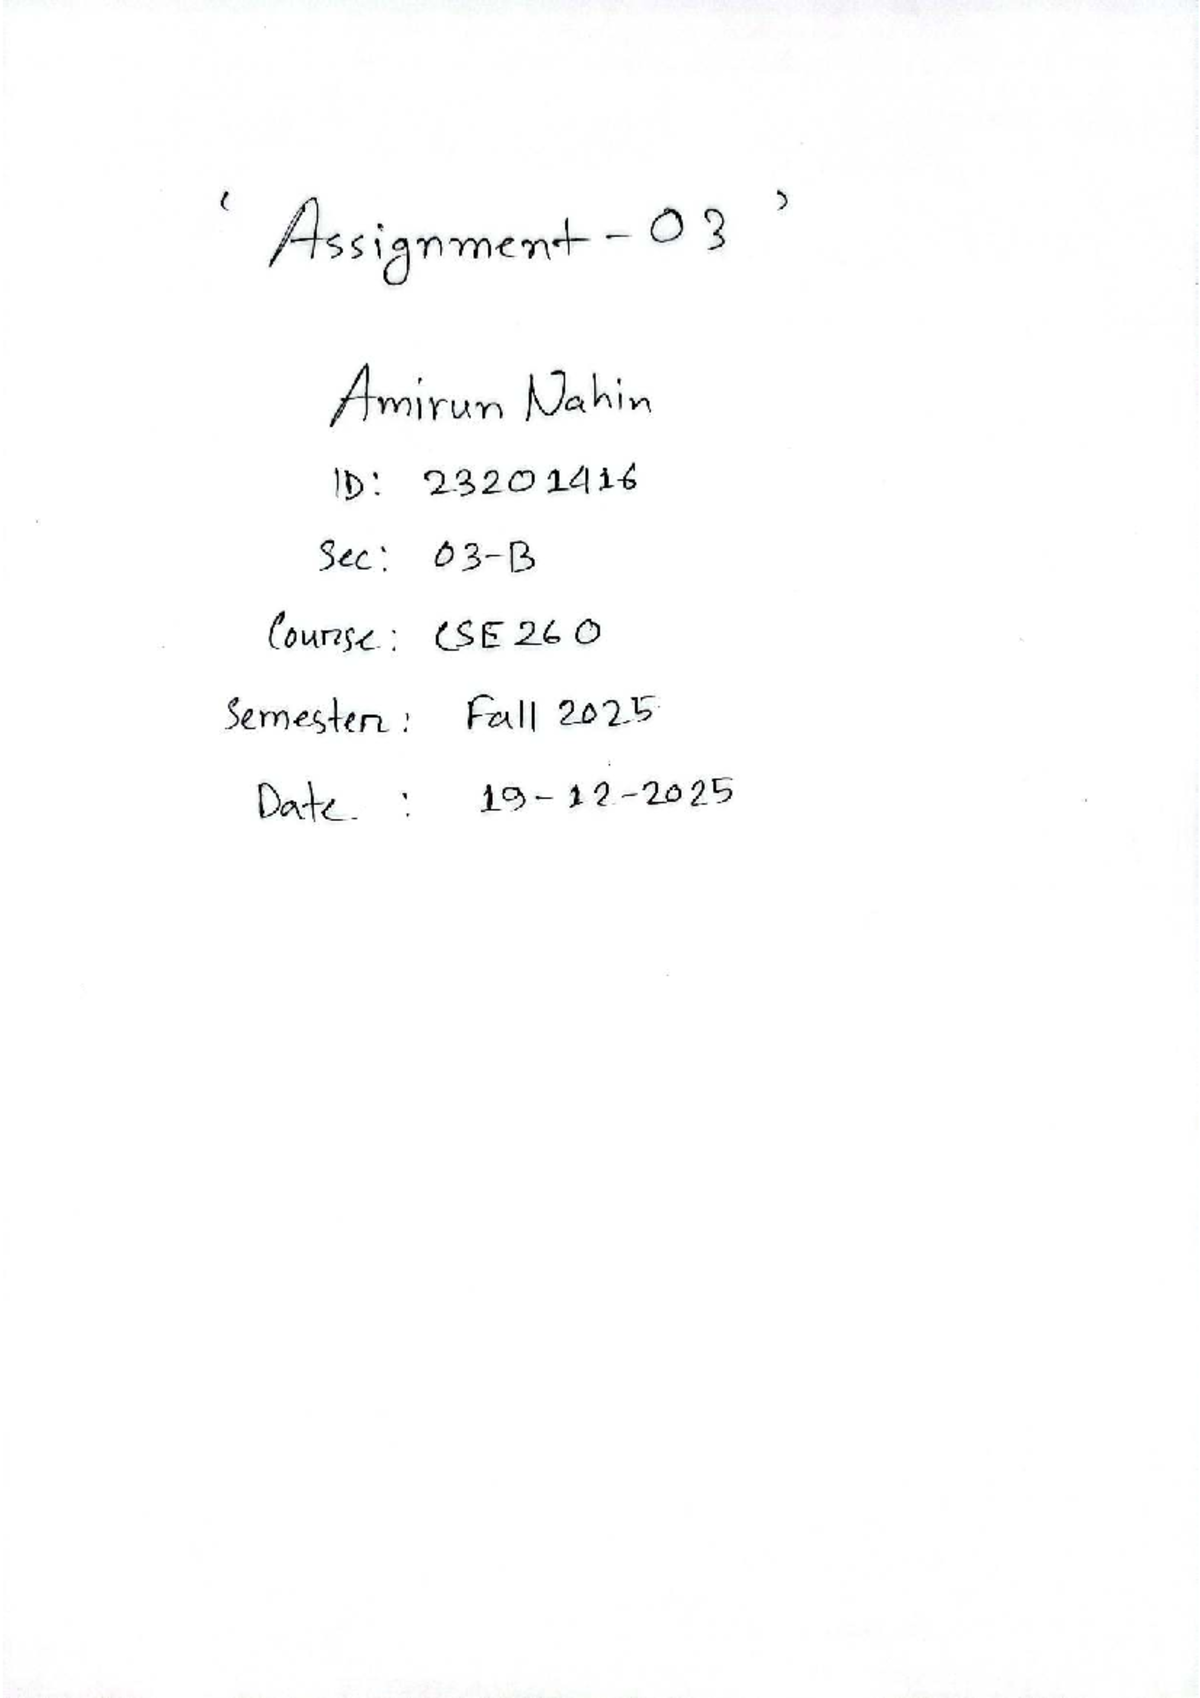 ‘ Assignment - 03 ’
Amirun Nahin
ID: 23201416
Sec: 03-B
Course: CSE 260
Semester: Fall 2025
Date : 19-12-2025